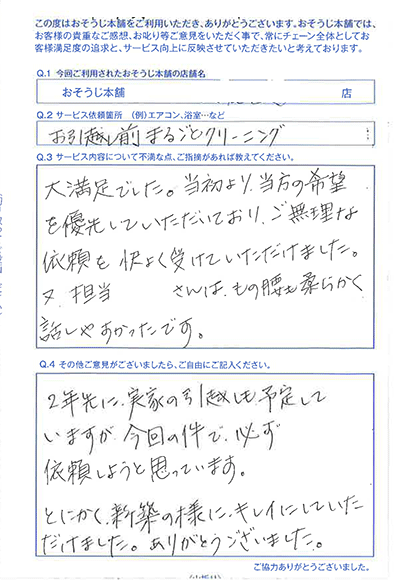 この度はおそうじ本舗をご利用いただき、ありがとうございます。おそうじ本舗では、
お客様の貴重なご感想、お叱り等ご意見をいただく事で、常にチェーン全体としてお
客様満足度の追求と、サービス向上に反映させていただきたいと考えております。
Q.1 今回ご利用されたおそうじ本舗の店舗名
おそうじ本舗 店
Q.2 サービス依頼箇所 (例)エアコン、浴室…など
お引越し前まるごとクリーニング
Q.3 サービス内容について不満な点、ご指摘があれば教えてください。
大満足でした。当初より、当方の希望
を優先していただいており、ご無理な
依頼を快よく受けていただけました。
又、担当 さんは、もの腰も柔らかく
話しやすかったです。
Q.4 その他ご意見がございましたら、ご自由にご記入ください。
2年先に、実家の引越しも予定して
いますが、今回の件で、必ず
依頼しようと思っています。
とにかく、新築の様に、キレイにしていた
だけました。ありがとうございました。
ご協力ありがとうございました。